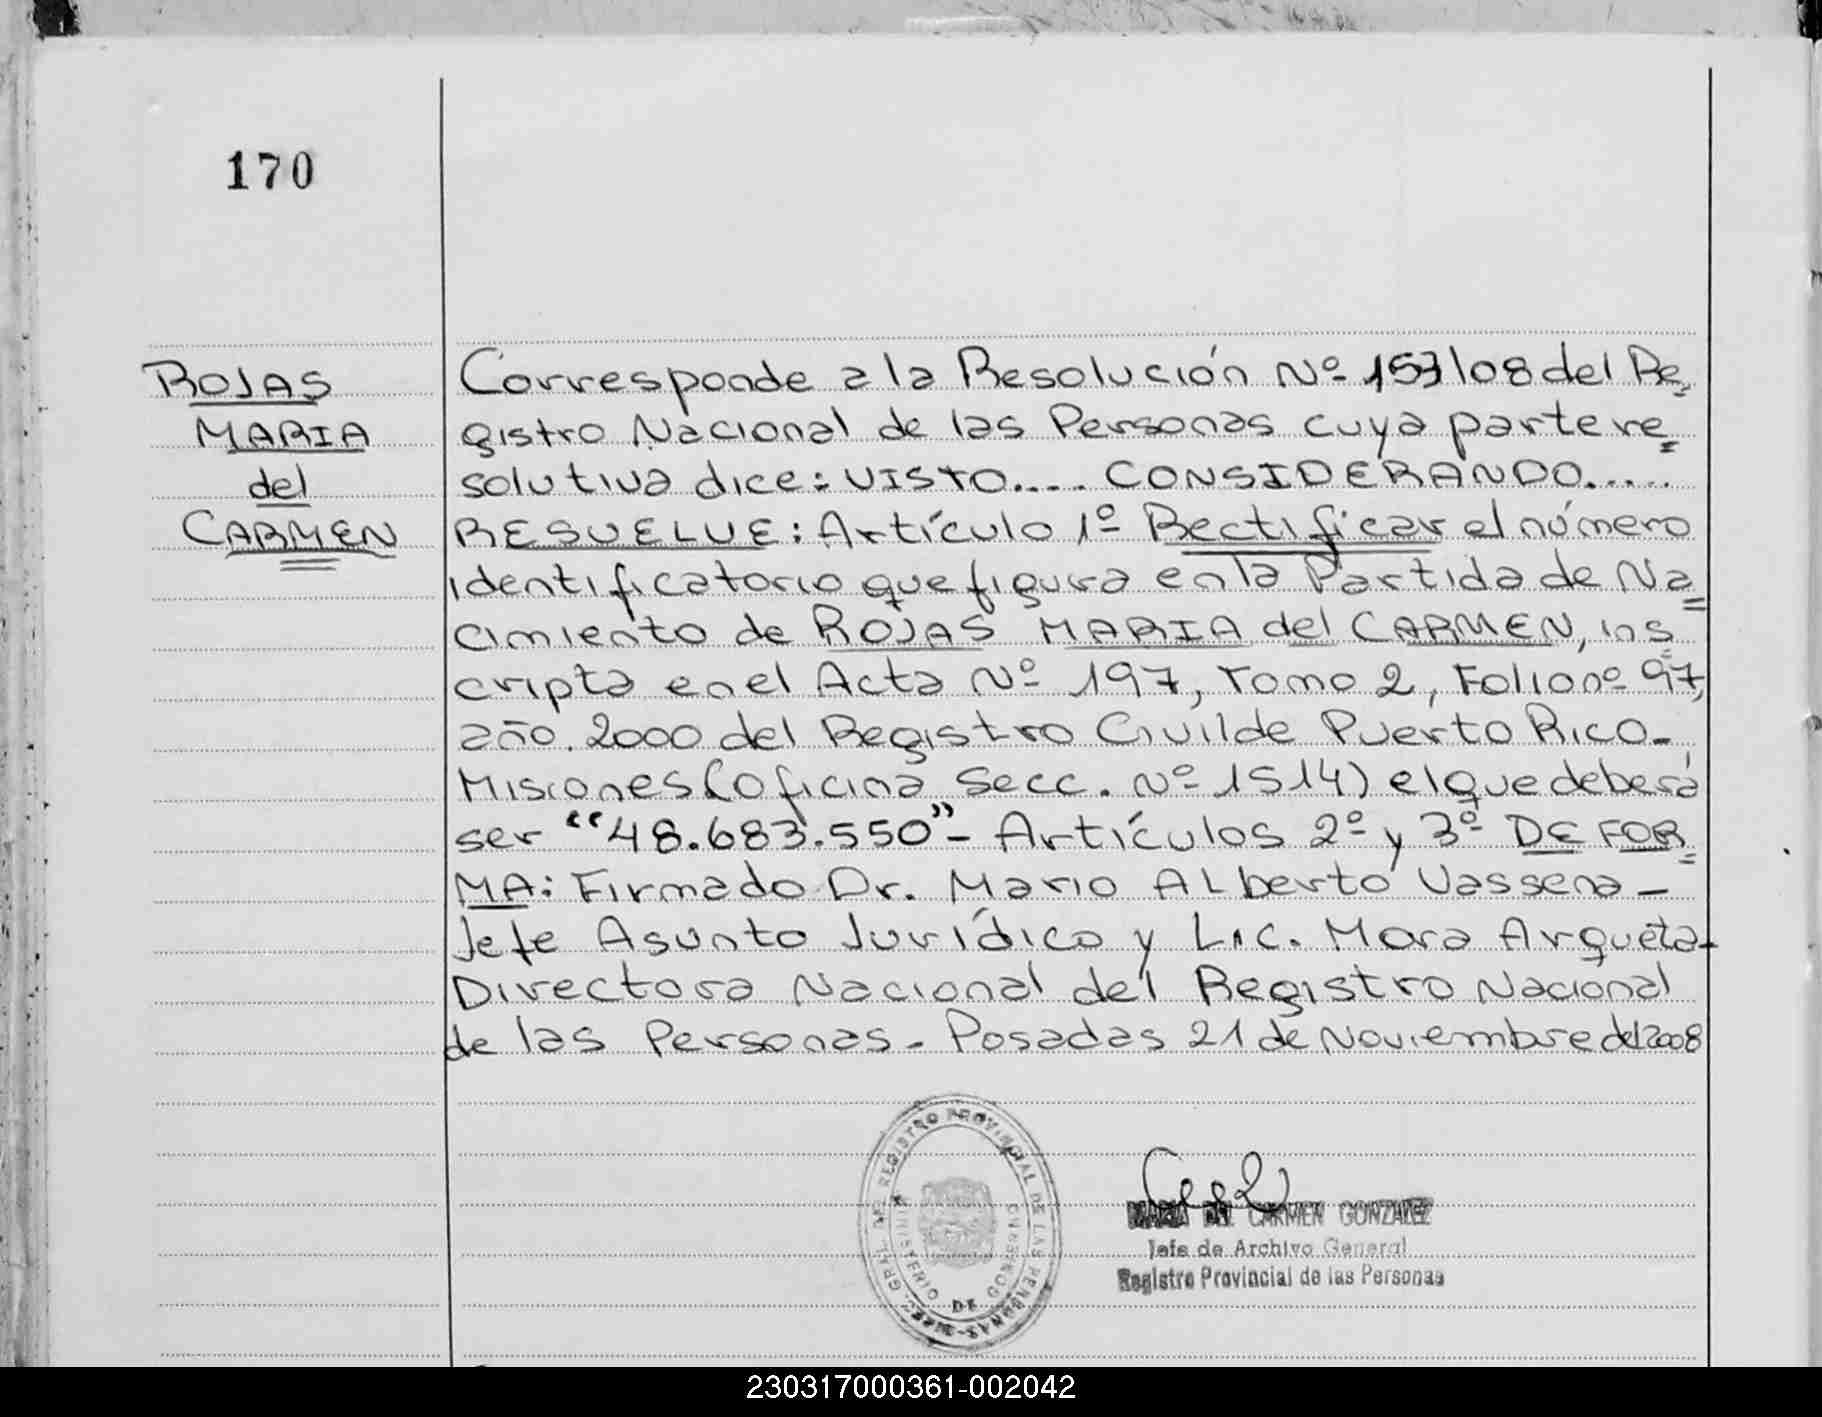 170
ROJAS
MARIA
del
CARMEN
Corresponde a la Resolución Nº 153/08 del Re=
gistro Nacional de las Personas cuya parte re=
solutiva dice: VISTO.... CONSIDERANDO.....
RESUELVE: Artículo 1º Rectificar el número
identificatorio que figura en la Partida de Na=
cimiento de ROJAS MARIA del CARMEN, ins=
cripta en el Acta Nº 197, Tomo 2, Folio nº 97,
año 2000 del Registro Civil de Puerto Rico-
Misiones (oficina Secc. Nº 1514) el que deberá
ser "48.683.550"- Artículos 2º y 3º DE FOR=
MA: Firmado Dr. Mario Alberto Vassena -
Jefe Asunto Jurídico y Lic. Mora Arqueta-
Directora Nacional del Registro Nacional
de las Personas. Posadas 21 de Noviembre del 2008
DIREC. GRAL. DEL REGISTRO PROVINCIAL DE LAS PERSONAS
MINISTERIO DE GOBIERNO
MARIA DEL CARMEN GONZALEZ
Jefe de Archivo General
Registro Provincial de las Personas
230317000361-002042